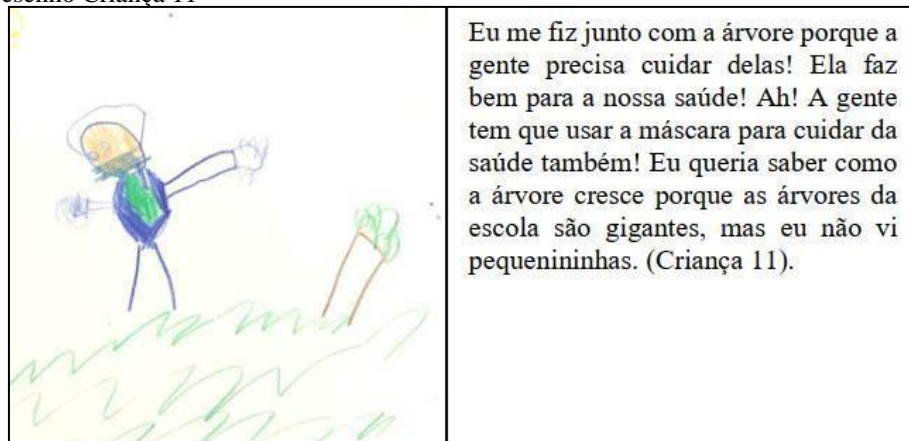 Desenho Criança 11
Eu me fiz junto com a árvore porque a
gente precisa cuidar delas! Ela faz
bem para a nossa saúde! Ah! A gente
tem que usar a máscara para cuidar da
saúde também! Eu queria saber como
a árvore cresce porque as árvores da
escola são gigantes, mas eu não vi
pequenininhas. (Criança 11).